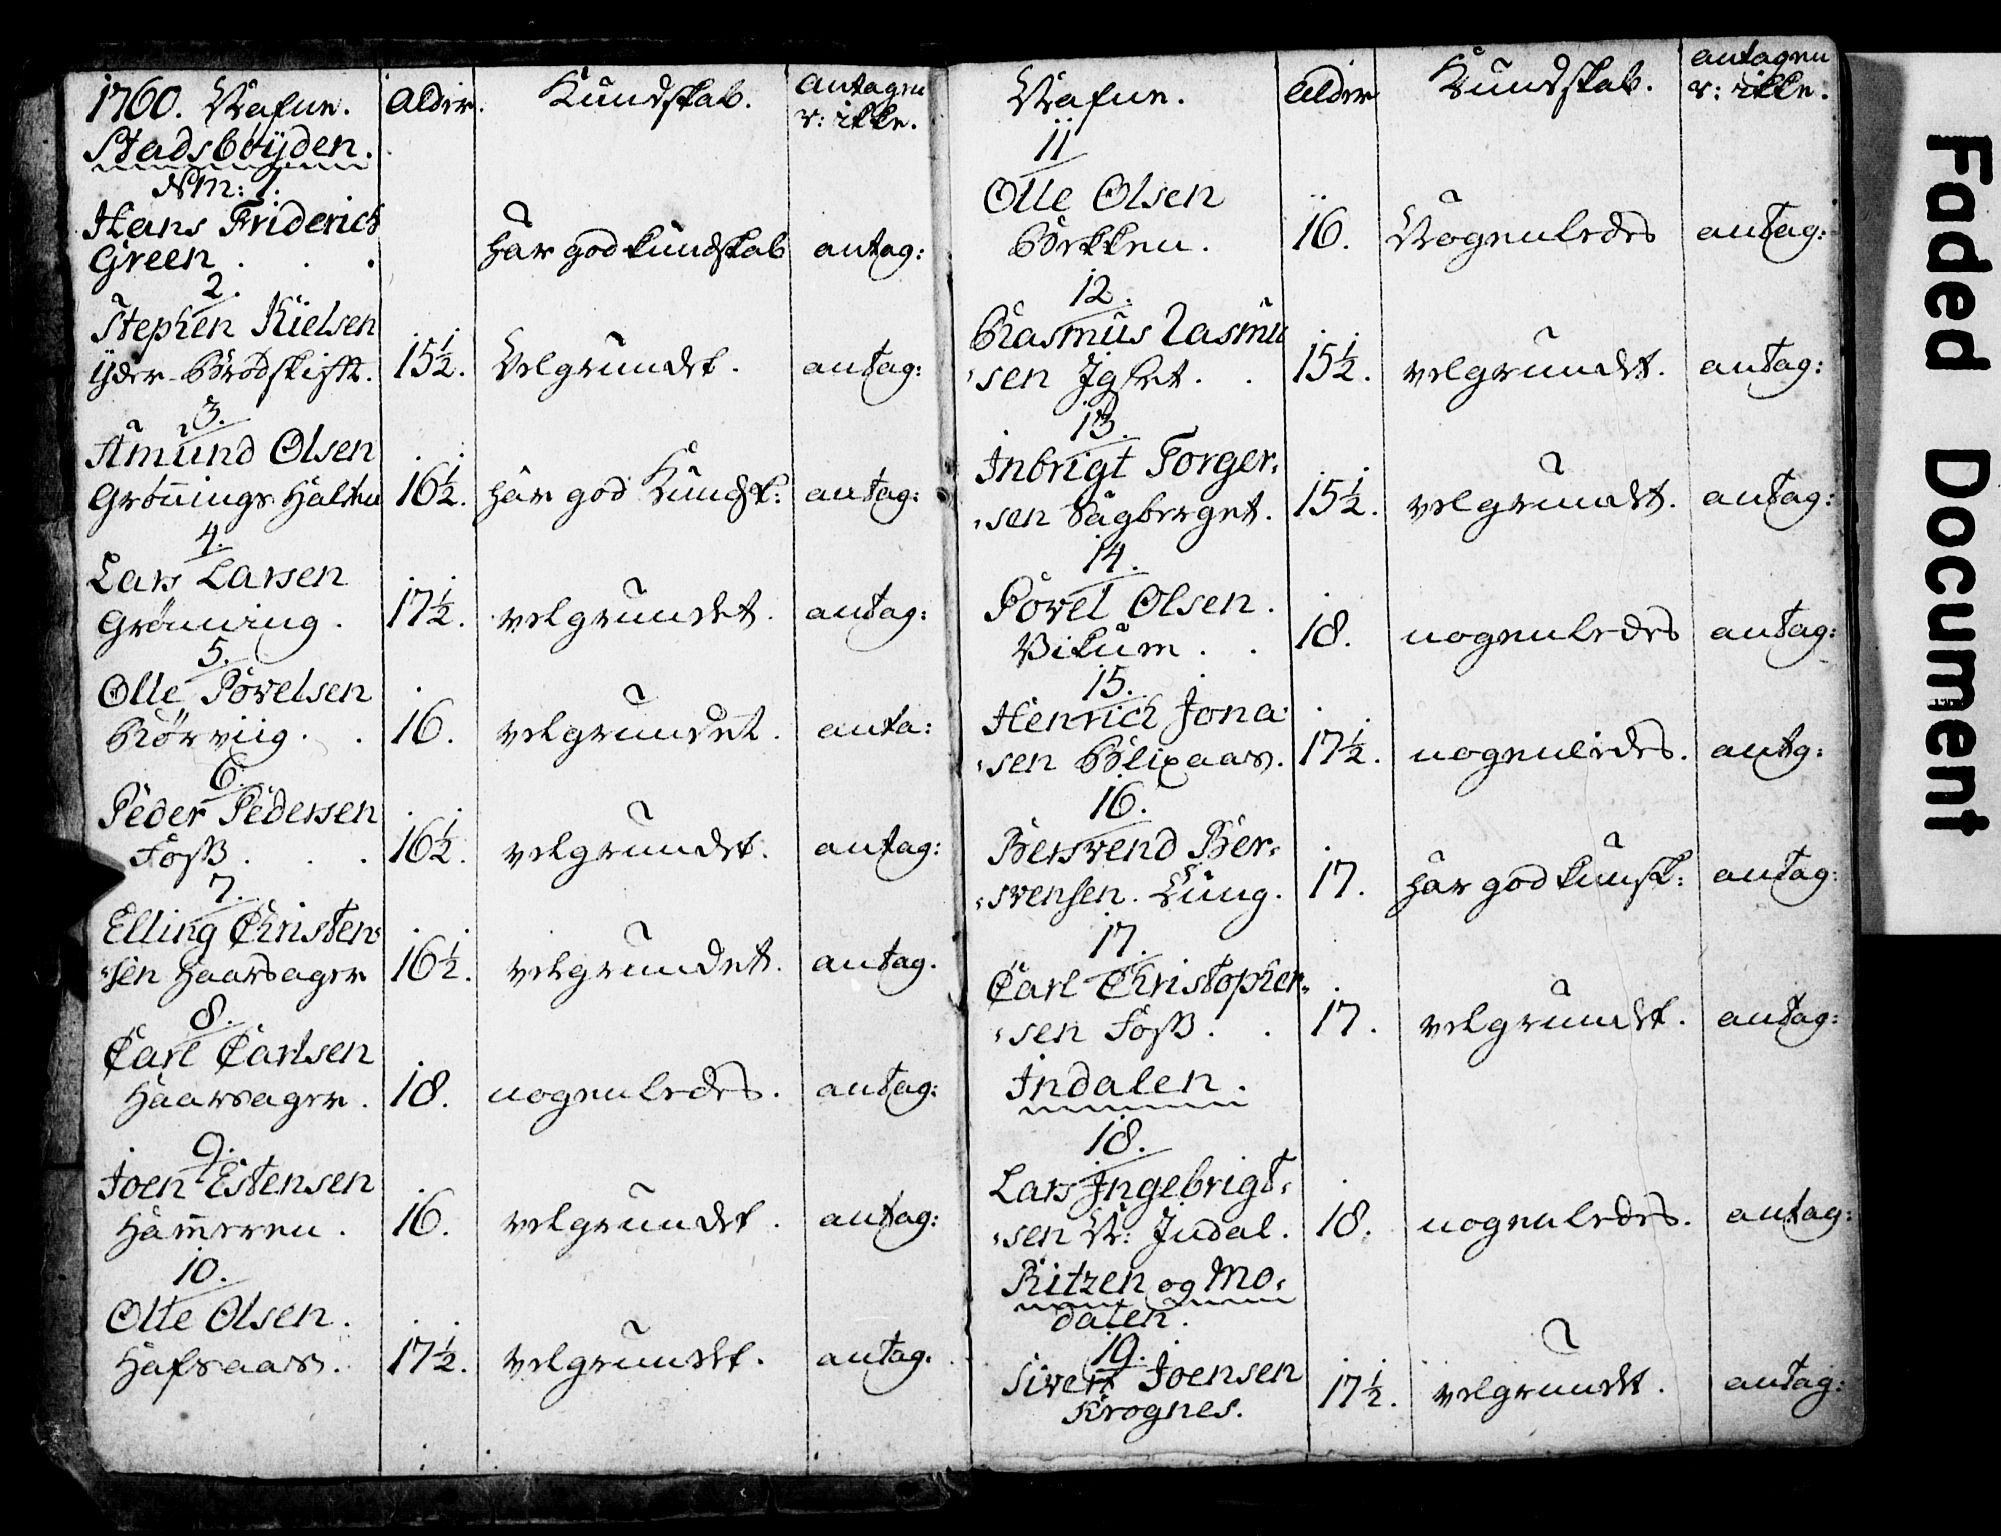 1760. Nafne. Alder. Kundskab. antagen
r: ikke.
Stadsbøÿden.
Nm: 1.
Hans Friderich
Green . . . har god kundskab antag:
2.
Stephen Nielsen
Yder-Brødskift. 15½. Velgrundet. antag:
3.
Amund Olsen
Grønings Halten 16½. har god Kundsk: antag:
4.
Lars Larsen
Grönning. 17½. velgrundet. antag:
5.
Olle Povelsen
Rörviig. . 16. velgrundet. anta:
6.
Peder Pedersen
Foss . . . 16½. velgrundet. antag:
7.
Elling Christen-
-sen Haarsager 16½. velgrundet. antag.
8.
Carl Carlsen
Haarsager. 18. nogenledes. antag:
9.
Joen Estensen
Ham̄eren. 16. velgrundet. antag:
10.
Olle Olsen.
Hafsaas. 17½. velgrundet. antag.
Nafne. Alder Kundskab. antagen
r: ikke.
11
Olle Olsen
Bekken. 16. Nogenledes antag:
12.
Rasmus Rasmu
-sen Iglet. . 15½. velgrundet. antag:
13.
Inbrigt Torger-
-sen Sagberget. 15½. velgrundet. antag:
14.
Povel Olsen.
Vikum . . 18. nogenledes antag:
15.
Henrich Jona-
-sen Blixaas. 17½. nogenledes. antg:
16.
Bersvend Ber-
-svensen. Lung. 17. har god kunsk: antag:
17.
Carl Christopher-
-sen Foss. . 17. velgrundet. antag:
Indalen.
18.
Lars Ingebrigt-
-sen N: Indal. 18. nogenledes. antag:
Ritzen og Mo-
dalen.
19.
Sivert Joensen
Krognes. 17½. velgrundet. antag:
Faded Document